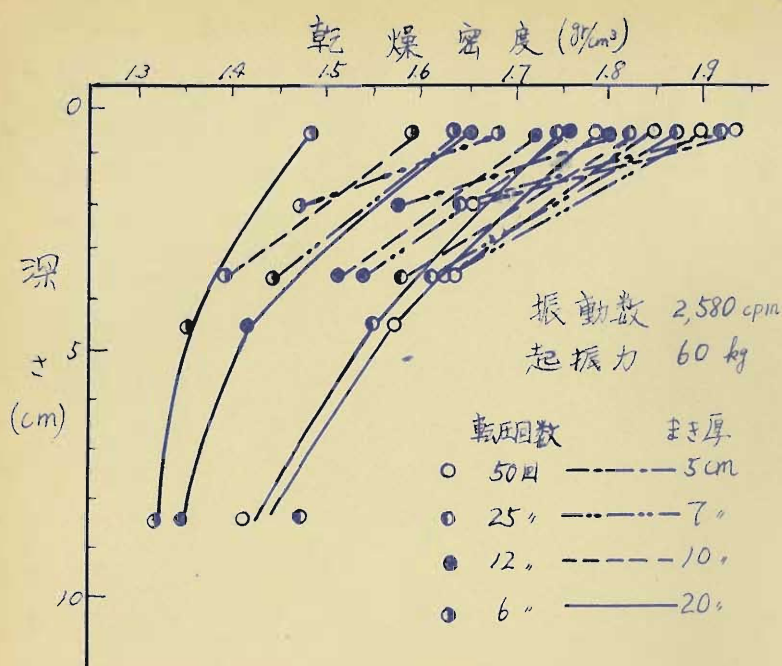 乾燥密度 (gr/cm³)
1.3 1.4 1.5 1.6 1.7 1.8 1.9
0
深さ
(cm)
5
10
振動数 2,580 cpm
起振力 60 kg
転圧回数 まき厚
50回 5cm
25 〃 7 〃
12 〃 10 〃
6 〃 20 〃